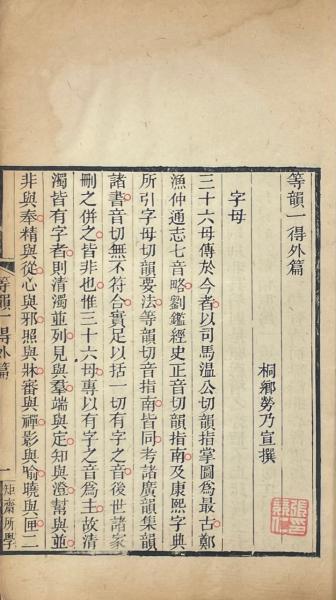 等韻一得外篇
桐鄉勞乃宣撰
字母
三十六母傳於今者以司馬溫公切韻指掌圖爲最古鄭
漁仲通志七音略劉鑑經史正音切韻指南及康熙字典
所引字母切韻要法等韻切音指南皆同考諸廣韻集韻
諸書音切無不符合實足以括一切有字之音後世諸家
刪之併之皆非也惟三十六母專以有字之音爲主故清
濁皆有字者則清濁並列見與羣端與定知與澄幫與並
非與奉精與從心與邪照與牀審與禪影與喻曉與匣二
等韻一得外篇
一
矩齋所學